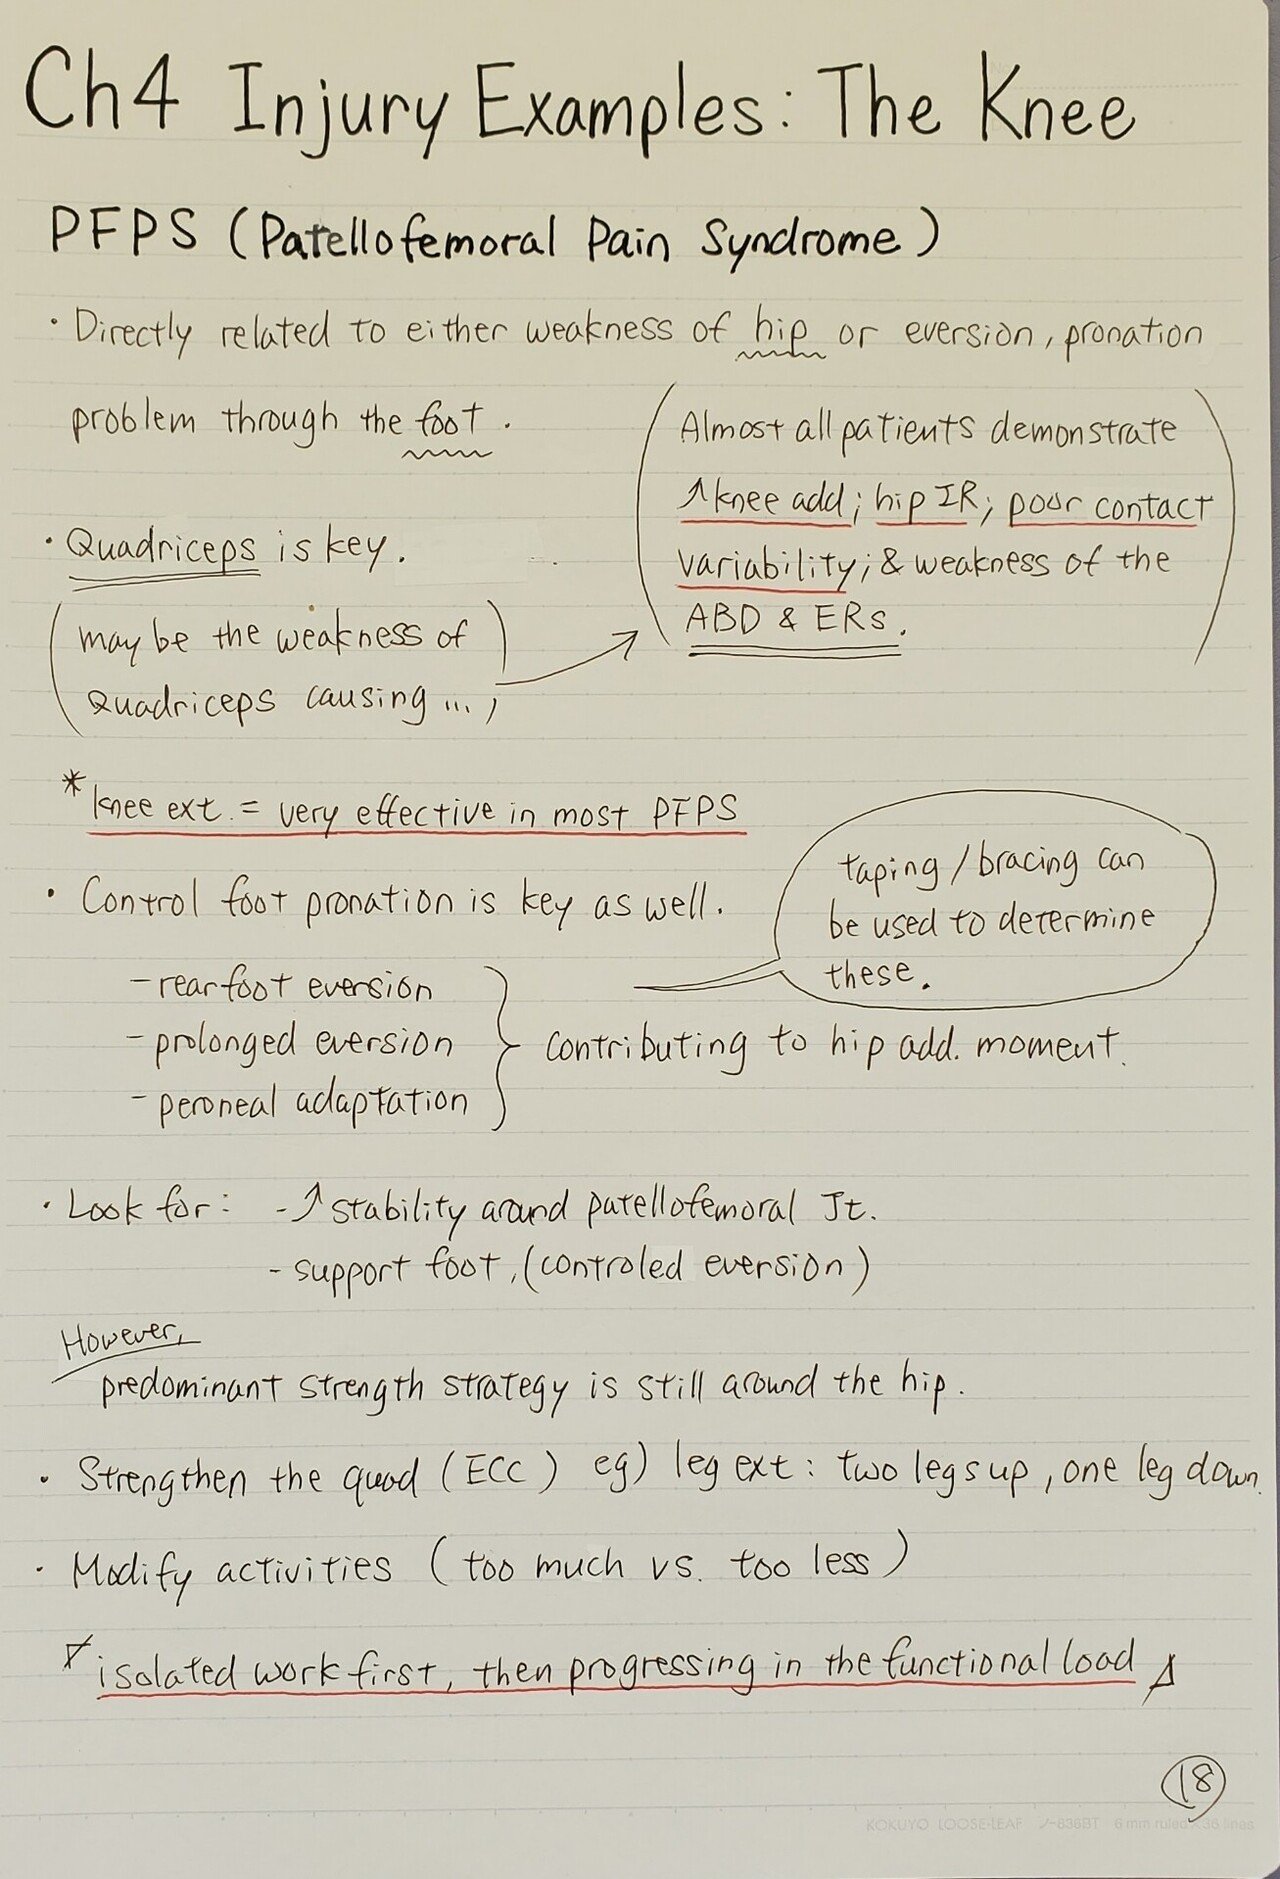 Ch4 Injury Examples: The Knee
PFPS (Patellofemoral Pain Syndrome)
· Directly related to either weakness of hip or eversion, pronation
problem through the foot.
(Almost all patients demonstrate
↑knee add; hip IR; poor contact
variability; & weakness of the
ABD & ERs.)
· Quadriceps is key.
(may be the weakness of
Quadriceps causing ...,)
* knee ext. = very effective in most PFPS
· Control foot pronation is key as well.
taping/bracing can
be used to determine
these.
- rearfoot eversion
- prolonged eversion
- peroneal adaptation
contributing to hip add. moment.
· Look for: - ↑stability around patellofemoral Jt.
- support foot, (controled eversion)
However,
predominant strength strategy is still around the hip.
· Strengthen the quad (ECC) eg) leg ext: two legs up, one leg down.
· Modify activities (too much vs. too less)
isolated work first, then progressing in the functional load
18
KOKUYO LOOSE-LEAF ノ-836BT 6 mm ruled × 36 lines